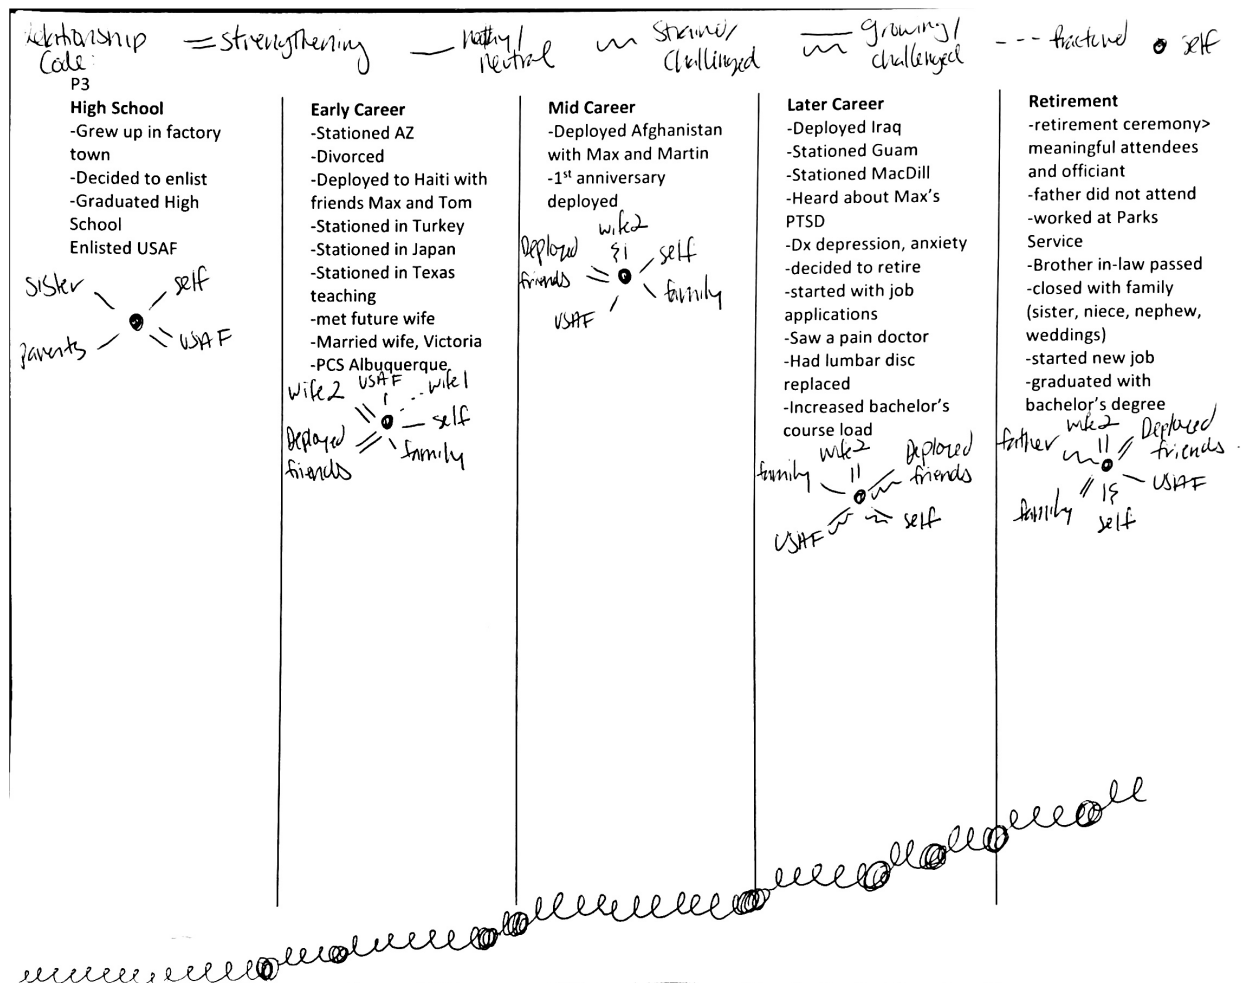 Relationship Code:
= strengthening
healthy/ neutral
strained/ challenged
growing/ challenged
--- fractured
self
P3
High School
-Grew up in factory
town
-Decided to enlist
-Graduated High
School
Enlisted USAF
sister
self
parents
USAF
Early Career
-Stationed AZ
-Divorced
-Deployed to Haiti with
friends Max and Tom
-Stationed in Turkey
-Stationed in Japan
-Stationed in Texas
teaching
-met future wife
-Married wife, Victoria
-PCS Albuquerque
wife2
USAF
wife1
self
Deployed
friends
family
Mid Career
-Deployed Afghanistan
with Max and Martin
-1st anniversary
deployed
wife2
Deployed
friends
self
family
USAF
Later Career
-Deployed Iraq
-Stationed Guam
-Stationed MacDill
-Heard about Max's
PTSD
-Dx depression, anxiety
-decided to retire
-started with job
applications
-Saw a pain doctor
-Had lumbar disc
replaced
-Increased bachelor's
course load
wife2
family
Deployed
friends
USAF
self
Retirement
-retirement ceremony>
meaningful attendees
and officiant
-father did not attend
-worked at Parks
Service
-Brother in-law passed
-closed with family
(sister, niece, nephew,
weddings)
-started new job
-graduated with
bachelor's degree
father
wife2
Deployed
friends
USAF
family
self